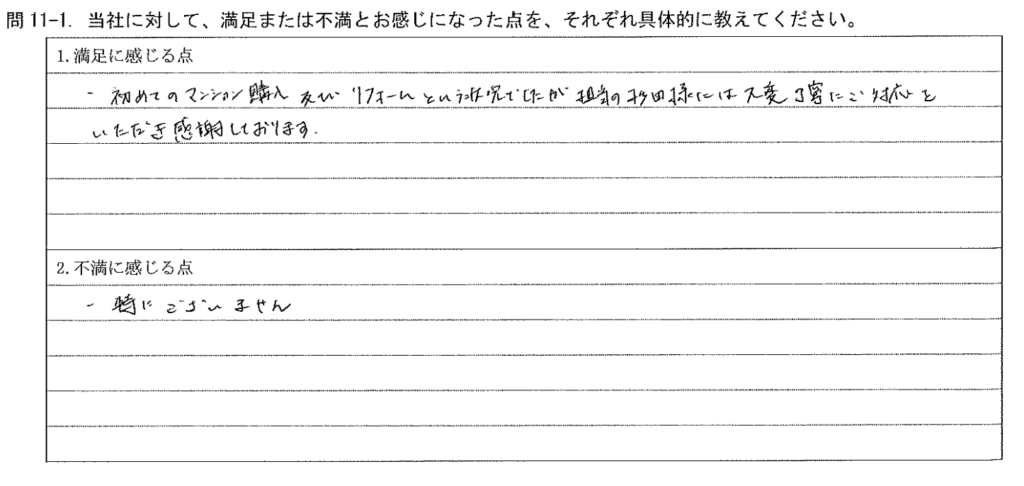 問11-1. 当社に対して、満足または不満とお感じになった点を、それぞれ具体的に教えてください。
1. 満足に感じる点
- 初めてのマンション購入及びリフォームという状況でしたが担当の杉田様には大変丁寧にご対応を
いただき感謝しております.
2. 不満に感じる点
- 特にございません